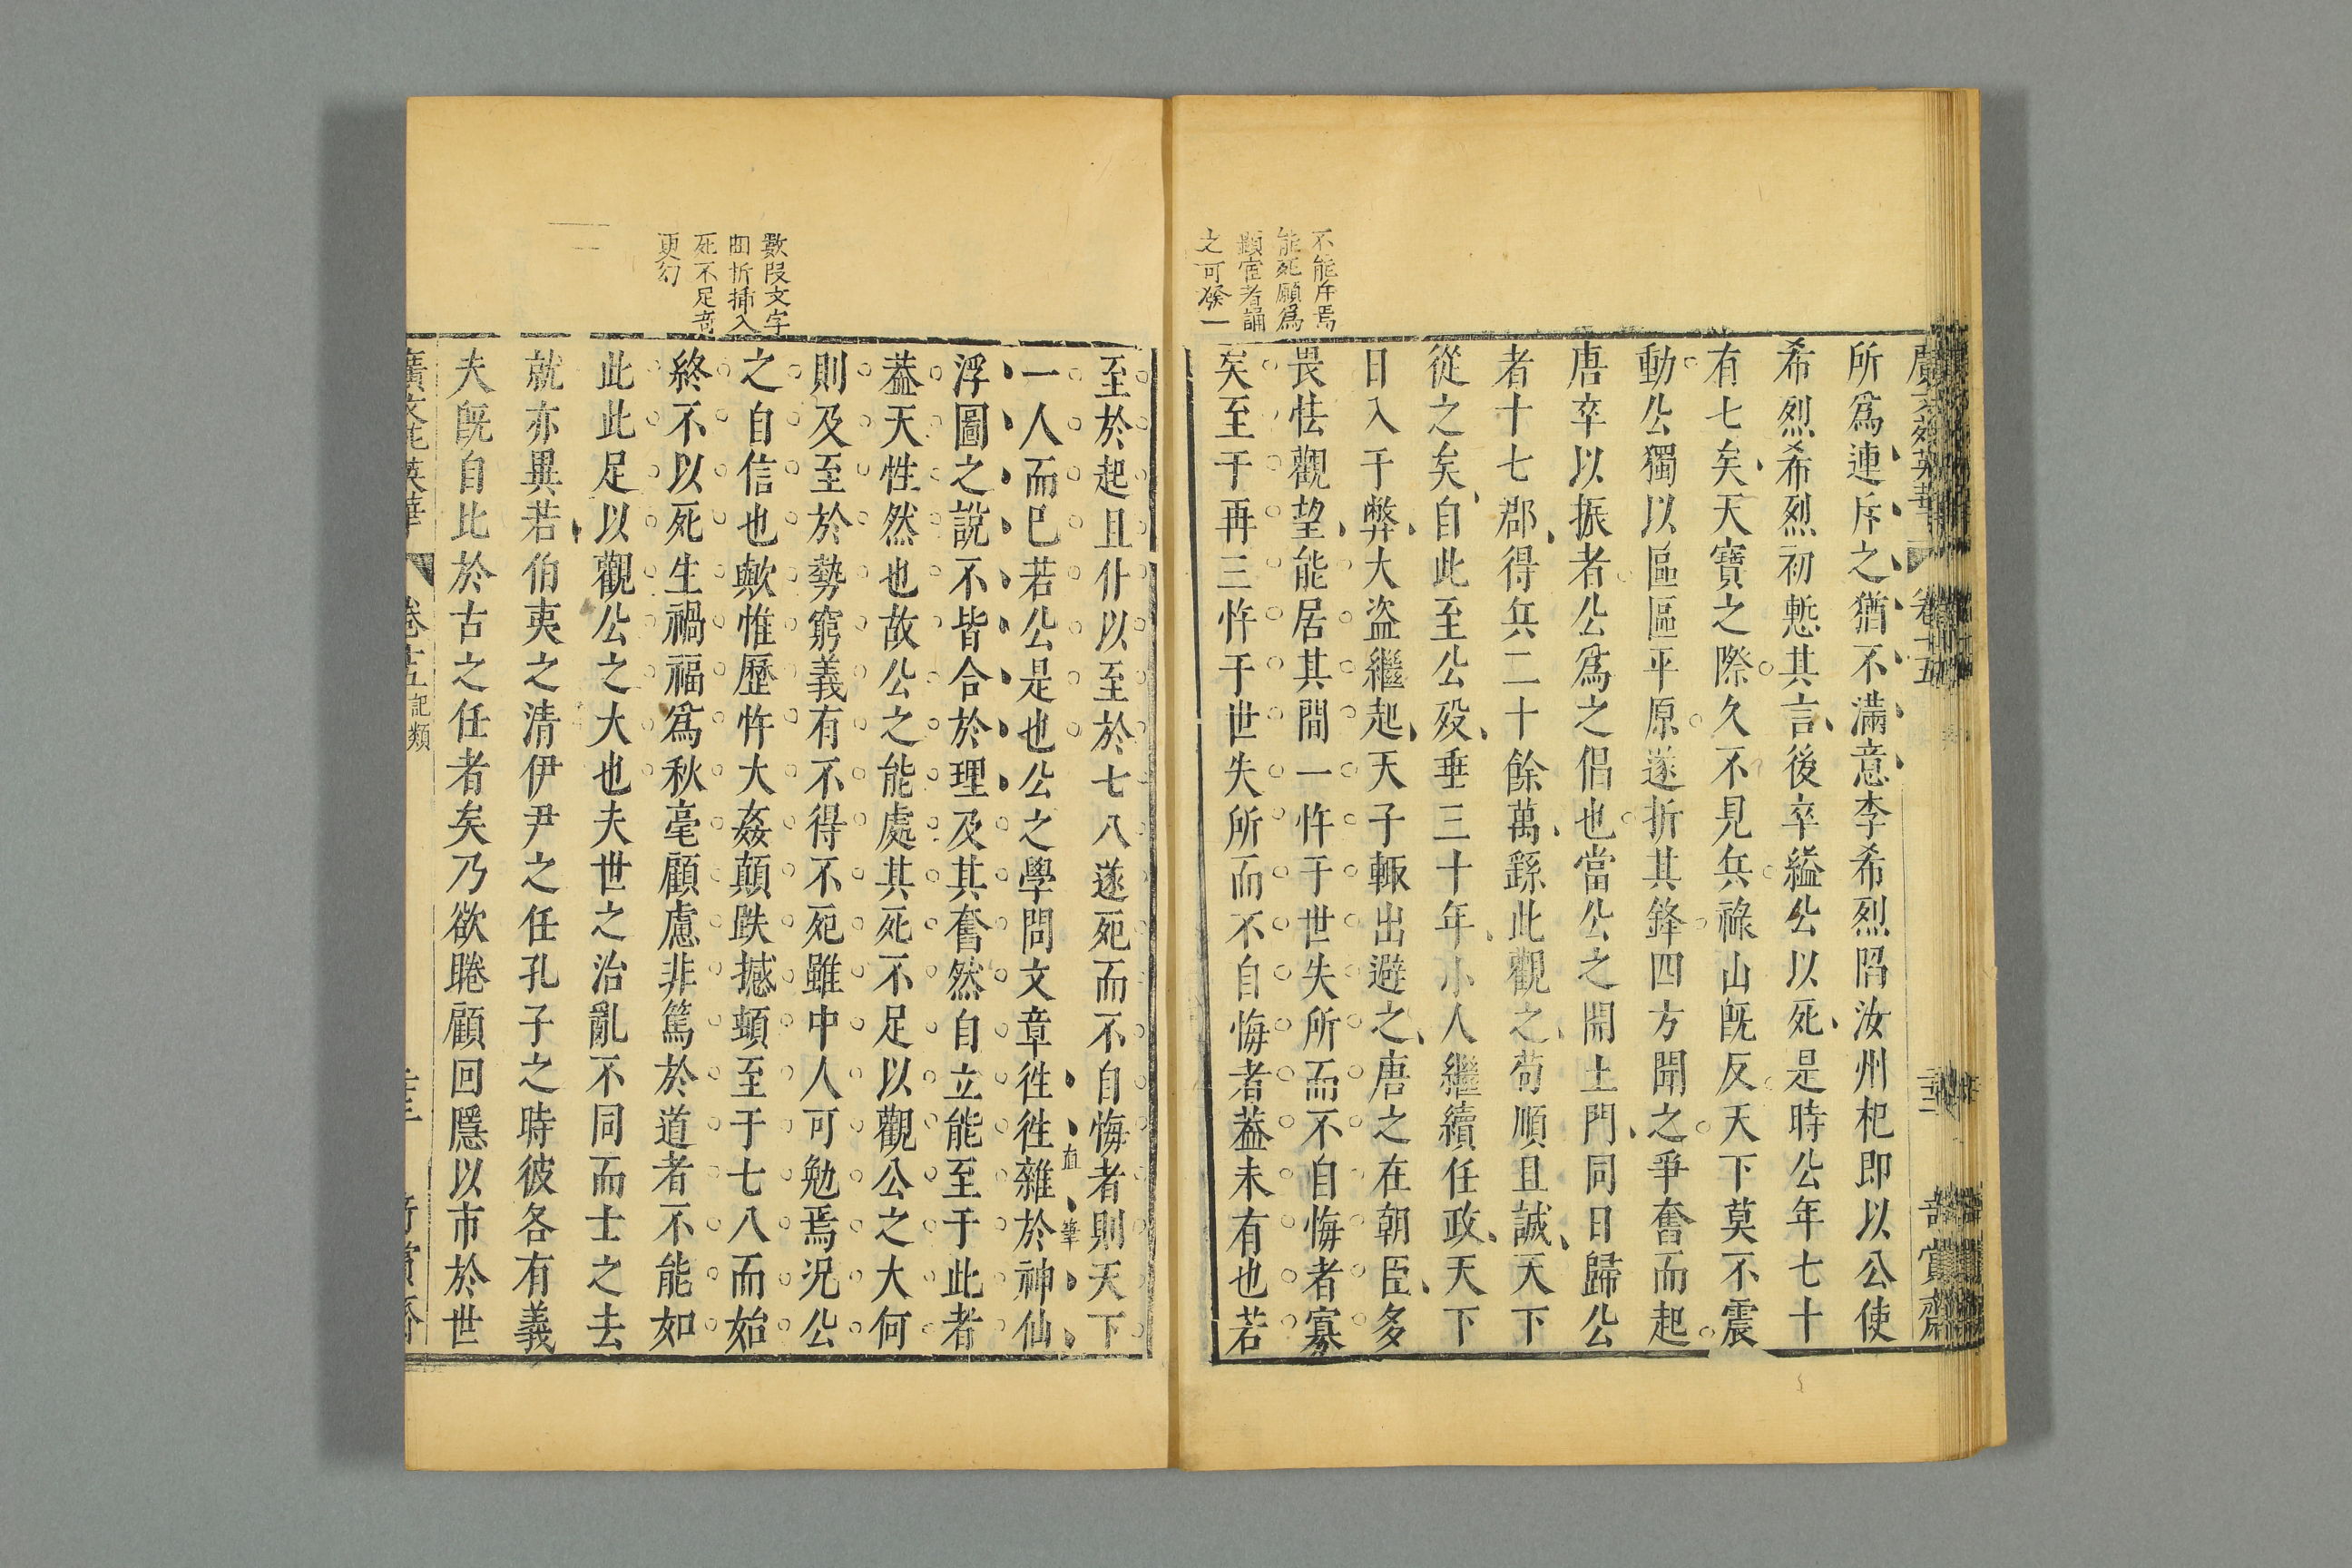 所爲連斥之猶不滿意李希烈陷汝州杞即以公使
希烈希烈初慙其言後卒縊公以死是時公年七十
有七矣天寶之際久不見兵祿山旣反天下莫不震
動公獨以區區平原遂折其鋒四方聞之爭奮而起
唐卒以振者公爲之倡也當公之開土門同日歸公
者十七郡得兵二十餘萬繇此觀之苟順且誠天下
從之矣自此至公殁垂三十年小人繼續任政天下
日入于弊大盗繼起天子輙出避之唐之在朝臣多
畏怯觀望能居其間一忤于世失所而不自悔者寡
矣至于再三忤于世失所而不自悔者葢未有也若
不能斥焉
能死願爲
顯宦者誦
之可
廣文苑英華 卷十五 奇賞齋
至於起且仆以至於七八遂死而不自悔者則天下
一人而巳若公是也公之學問文章徃徃雜於神仙
直筆
浮圖之說不皆合於理及其奮然自立能至于此者
葢天性然也故公之能處其死不足以觀公之大何
則及至於勢窮義有不得不死雖中人可勉焉况公
之自信也歟惟歷忤大姦顛跌撼頓至于七八而始
終不以死生禍福爲秋毫顧慮非篤於道者不能如
此此足以觀公之大也夫世之治亂不同而士之去
就亦異若伯夷之清伊尹之任孔子之時彼各有義
夫旣自比於古之任者矣乃欲睠顧回隱以市於世
數段文字
曲折揷入
死不足竒
更幻
廣文苑英華 卷十五 記類 奇賞齋